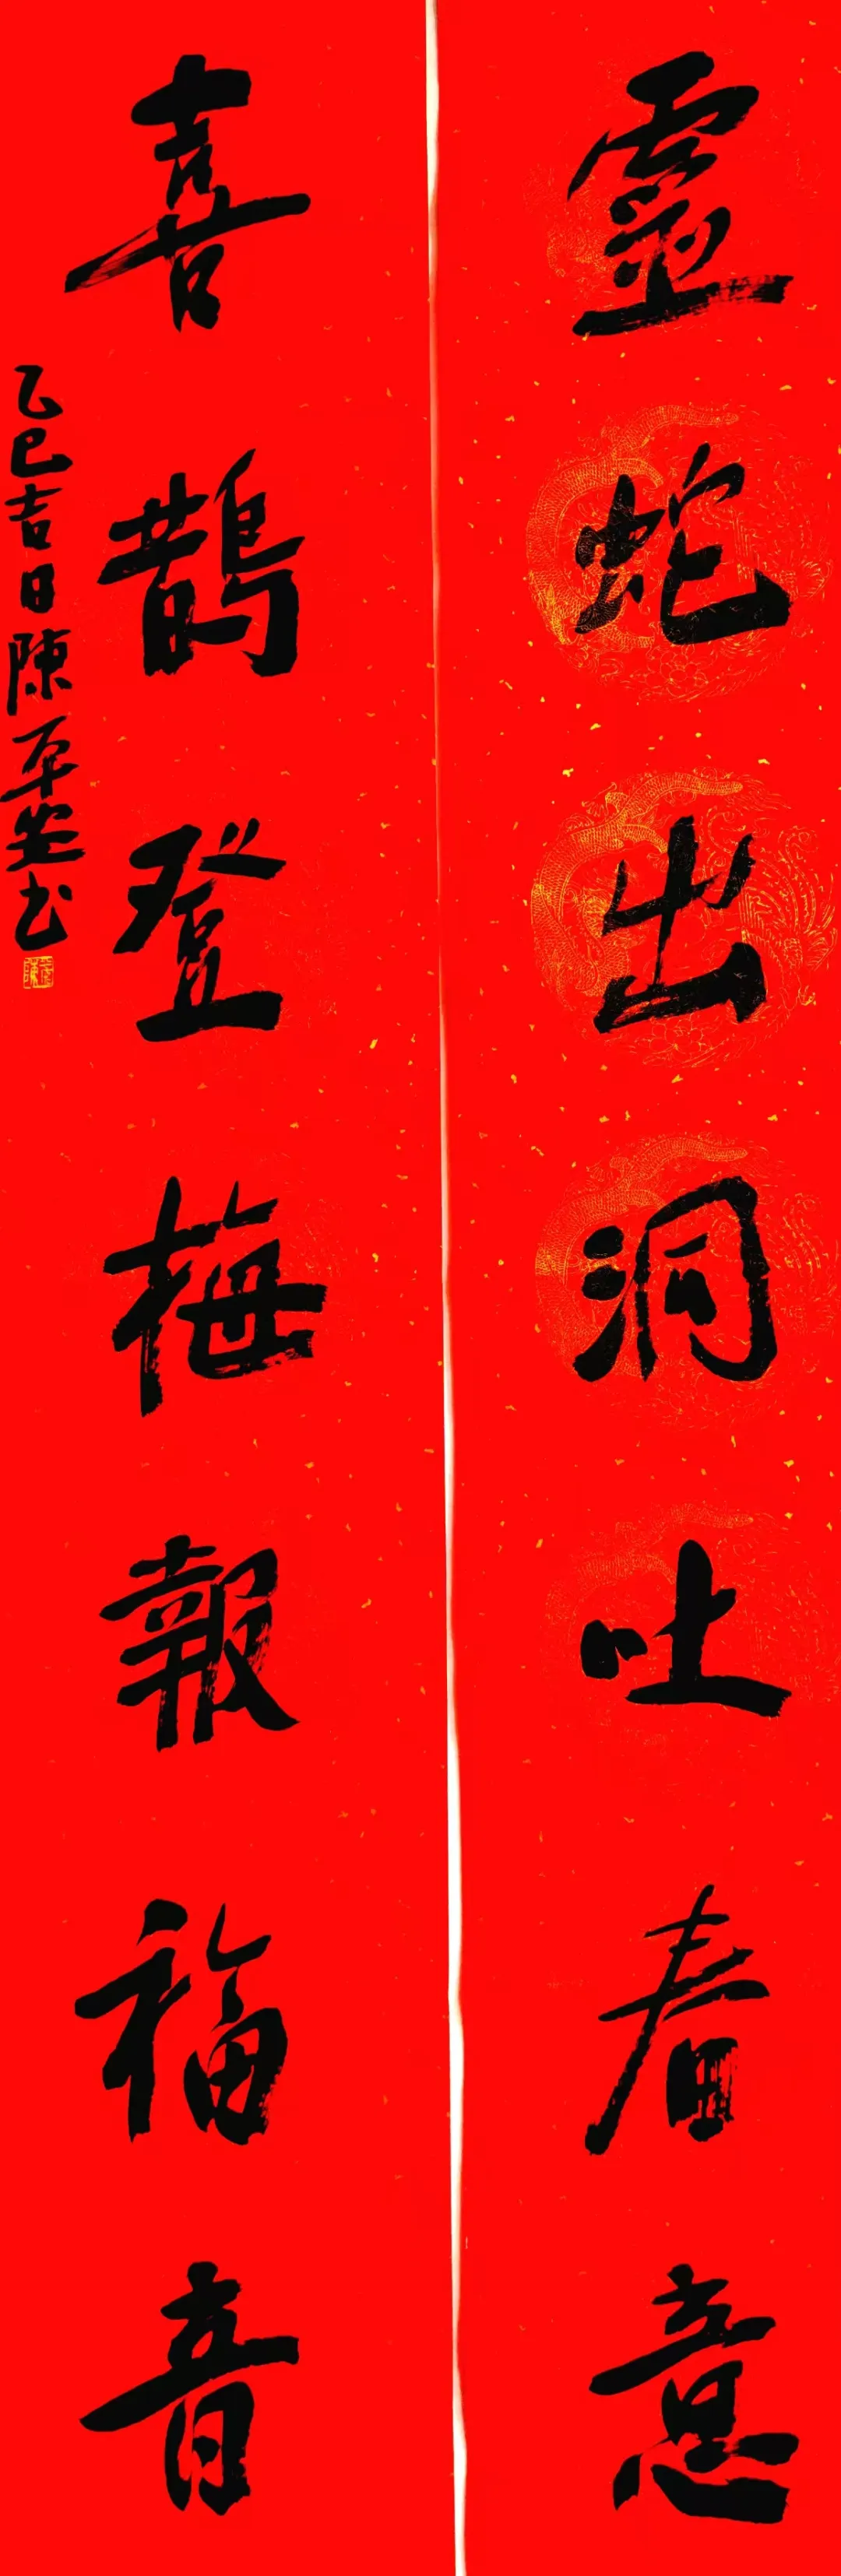 靈蛇出洞吐春意
喜鵲登梅報福音
乙巳吉日陳平安书